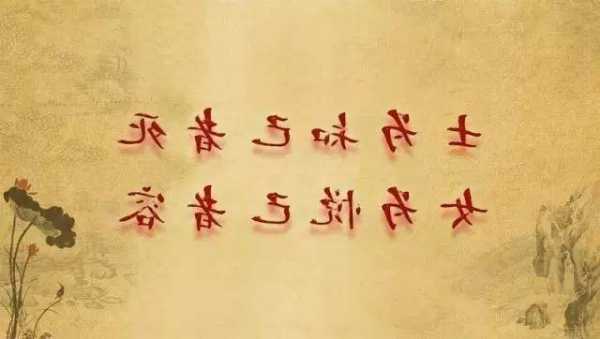 士为知己者死
女为悦己者容